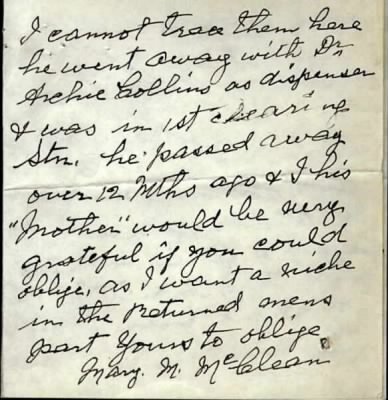 I cannot trace them here
he went away with Dr
Archie Collins as dispenser
& was in 1st clearing
Stn. he passed away
over 12 Mths ago & I his
"Mother" would be very
grateful if you could
oblige, as I want a niche
in the Returned mens
part Yours to oblige
Mary. M. McClean